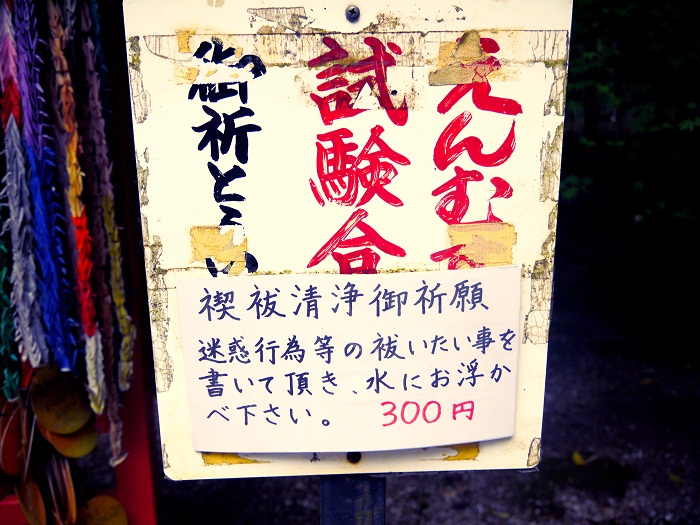 えんむ
試験合
御祈とう
禊祓清浄御祈願
迷惑行為等の祓いたい事を
書いて頂き、水にお浮か
べ下さい。 300円